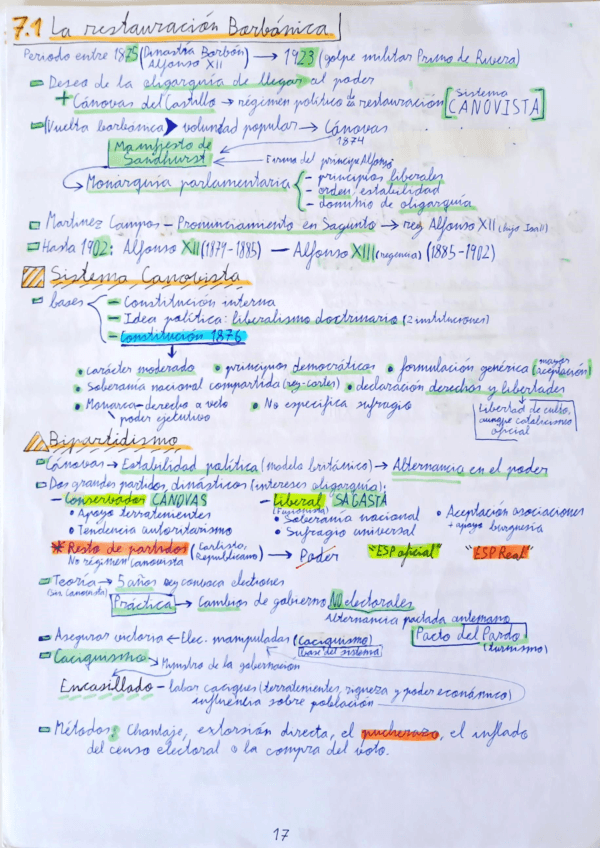 7.1 La restauración Borbónica
Periodo entre 1875 (Dinastía Borbón, Alfonso XII) → 1923 (golpe militar Primo de Rivera)
Deseo de la oligarquía de llegar al poder
+ Cánovas del Castillo → régimen político de la restauración [Sistema CANOVISTA]
Vuelta borbónica voluntad popular → Cánovas
1874
Manifiesto de Sandhurst
Firma del príncipe Alfonso
Monarquía parlamentaria
- principios liberales
- orden, estabilidad
- dominio de oligarquía
Martínez Campos - Pronunciamiento en Sagunto → rey Alfonso XII (hijo Isa II)
Hasta 1902: Alfonso XII (1874-1885) - Alfonso XIII (regencia) (1885-1902)
Sistema Canovista
bases
- Constitución interna
- Idea política: liberalismo doctrinario (2 instituciones)
- Constitución 1876
• carácter moderado • principios democráticos • formulación genérica (mayor aceptación)
• Soberanía nacional compartida (rey-cortes) • declaración derechos y libertades
• Monarca - derecho a veto • No especifica sufragio
poder ejecutivo
Libertad de culto, aunque catolicismo oficial
Bipartidismo
Cánovas → Estabilidad política (modelo británico) → Alternancia en el poder
Dos grandes partidos, dinásticos (intereses oligarquía):
- Conservador CÁNOVAS - Liberal SAGASTA
(Fusionista)
• Apoyo terratenientes • Soberanía nacional • Aceptación asociaciones
• Tendencia autoritarismo • Sufragio universal + apoyo burguesía
* Resto de partidos (Carlista, Republicano) → Poder "ESP oficial" "ESP Real"
No régimen canovista
Teoría → 5 años rey convoca elecciones
(Sis Canovista)
Práctica → Cambios de gobierno NO electorales
Alternancia pactada antemano
Asegurar victoria ← Elec. manipuladas (Caciquismo) Pacto del Pardo
base del sistema (turnismo)
Caciquismo
Ministro de la gobernación
Encasillado - labor caciques (terratenientes, riqueza y poder económico)
influencia sobre población
Métodos: Chantaje, extorsión directa, el pucherazo, el inflado
del censo electoral o la compra del voto.
17